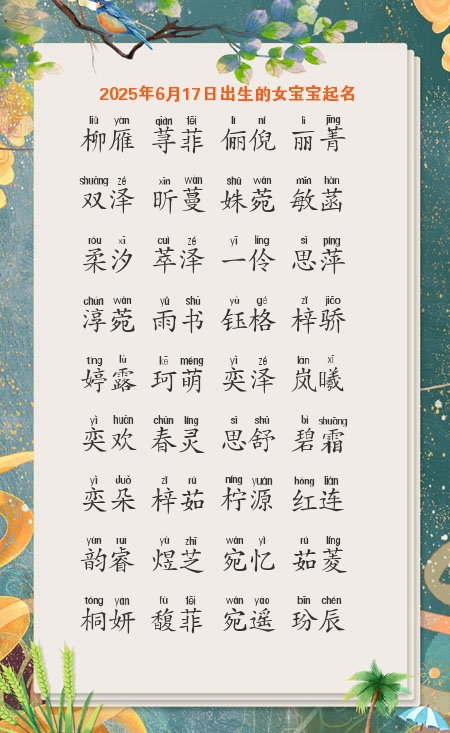 2025年6月17日出生的女宝宝起名
liǔ yàn qián fēi lì ní lì jīng
柳雁 荨菲 俪倪 丽菁
shuāng zé xīn wàn shū wǎn mǐn hàn
双泽 昕蔓 姝菀 敏菡
róu xī cuì zé yī líng sī píng
柔汐 萃泽 一伶 思萍
chún wǎn yǔ shū yù gé zǐ jiāo
淳菀 雨书 钰格 梓骄
tíng lù kē méng yì zé lán xī
婷露 珂萌 奕泽 岚曦
yì huān chūn líng sī shū bì shuāng
奕欢 春灵 思舒 碧霜
yì duǒ zǐ rú níng yuán hóng lián
奕朵 梓茹 柠源 红连
yùn ruì yù zhī wǎn yì rú líng
韵睿 煜芝 宛忆 茹菱
tóng yán fù fēi wǎn yáo bīn chén
桐妍 馥菲 宛遥 玢辰